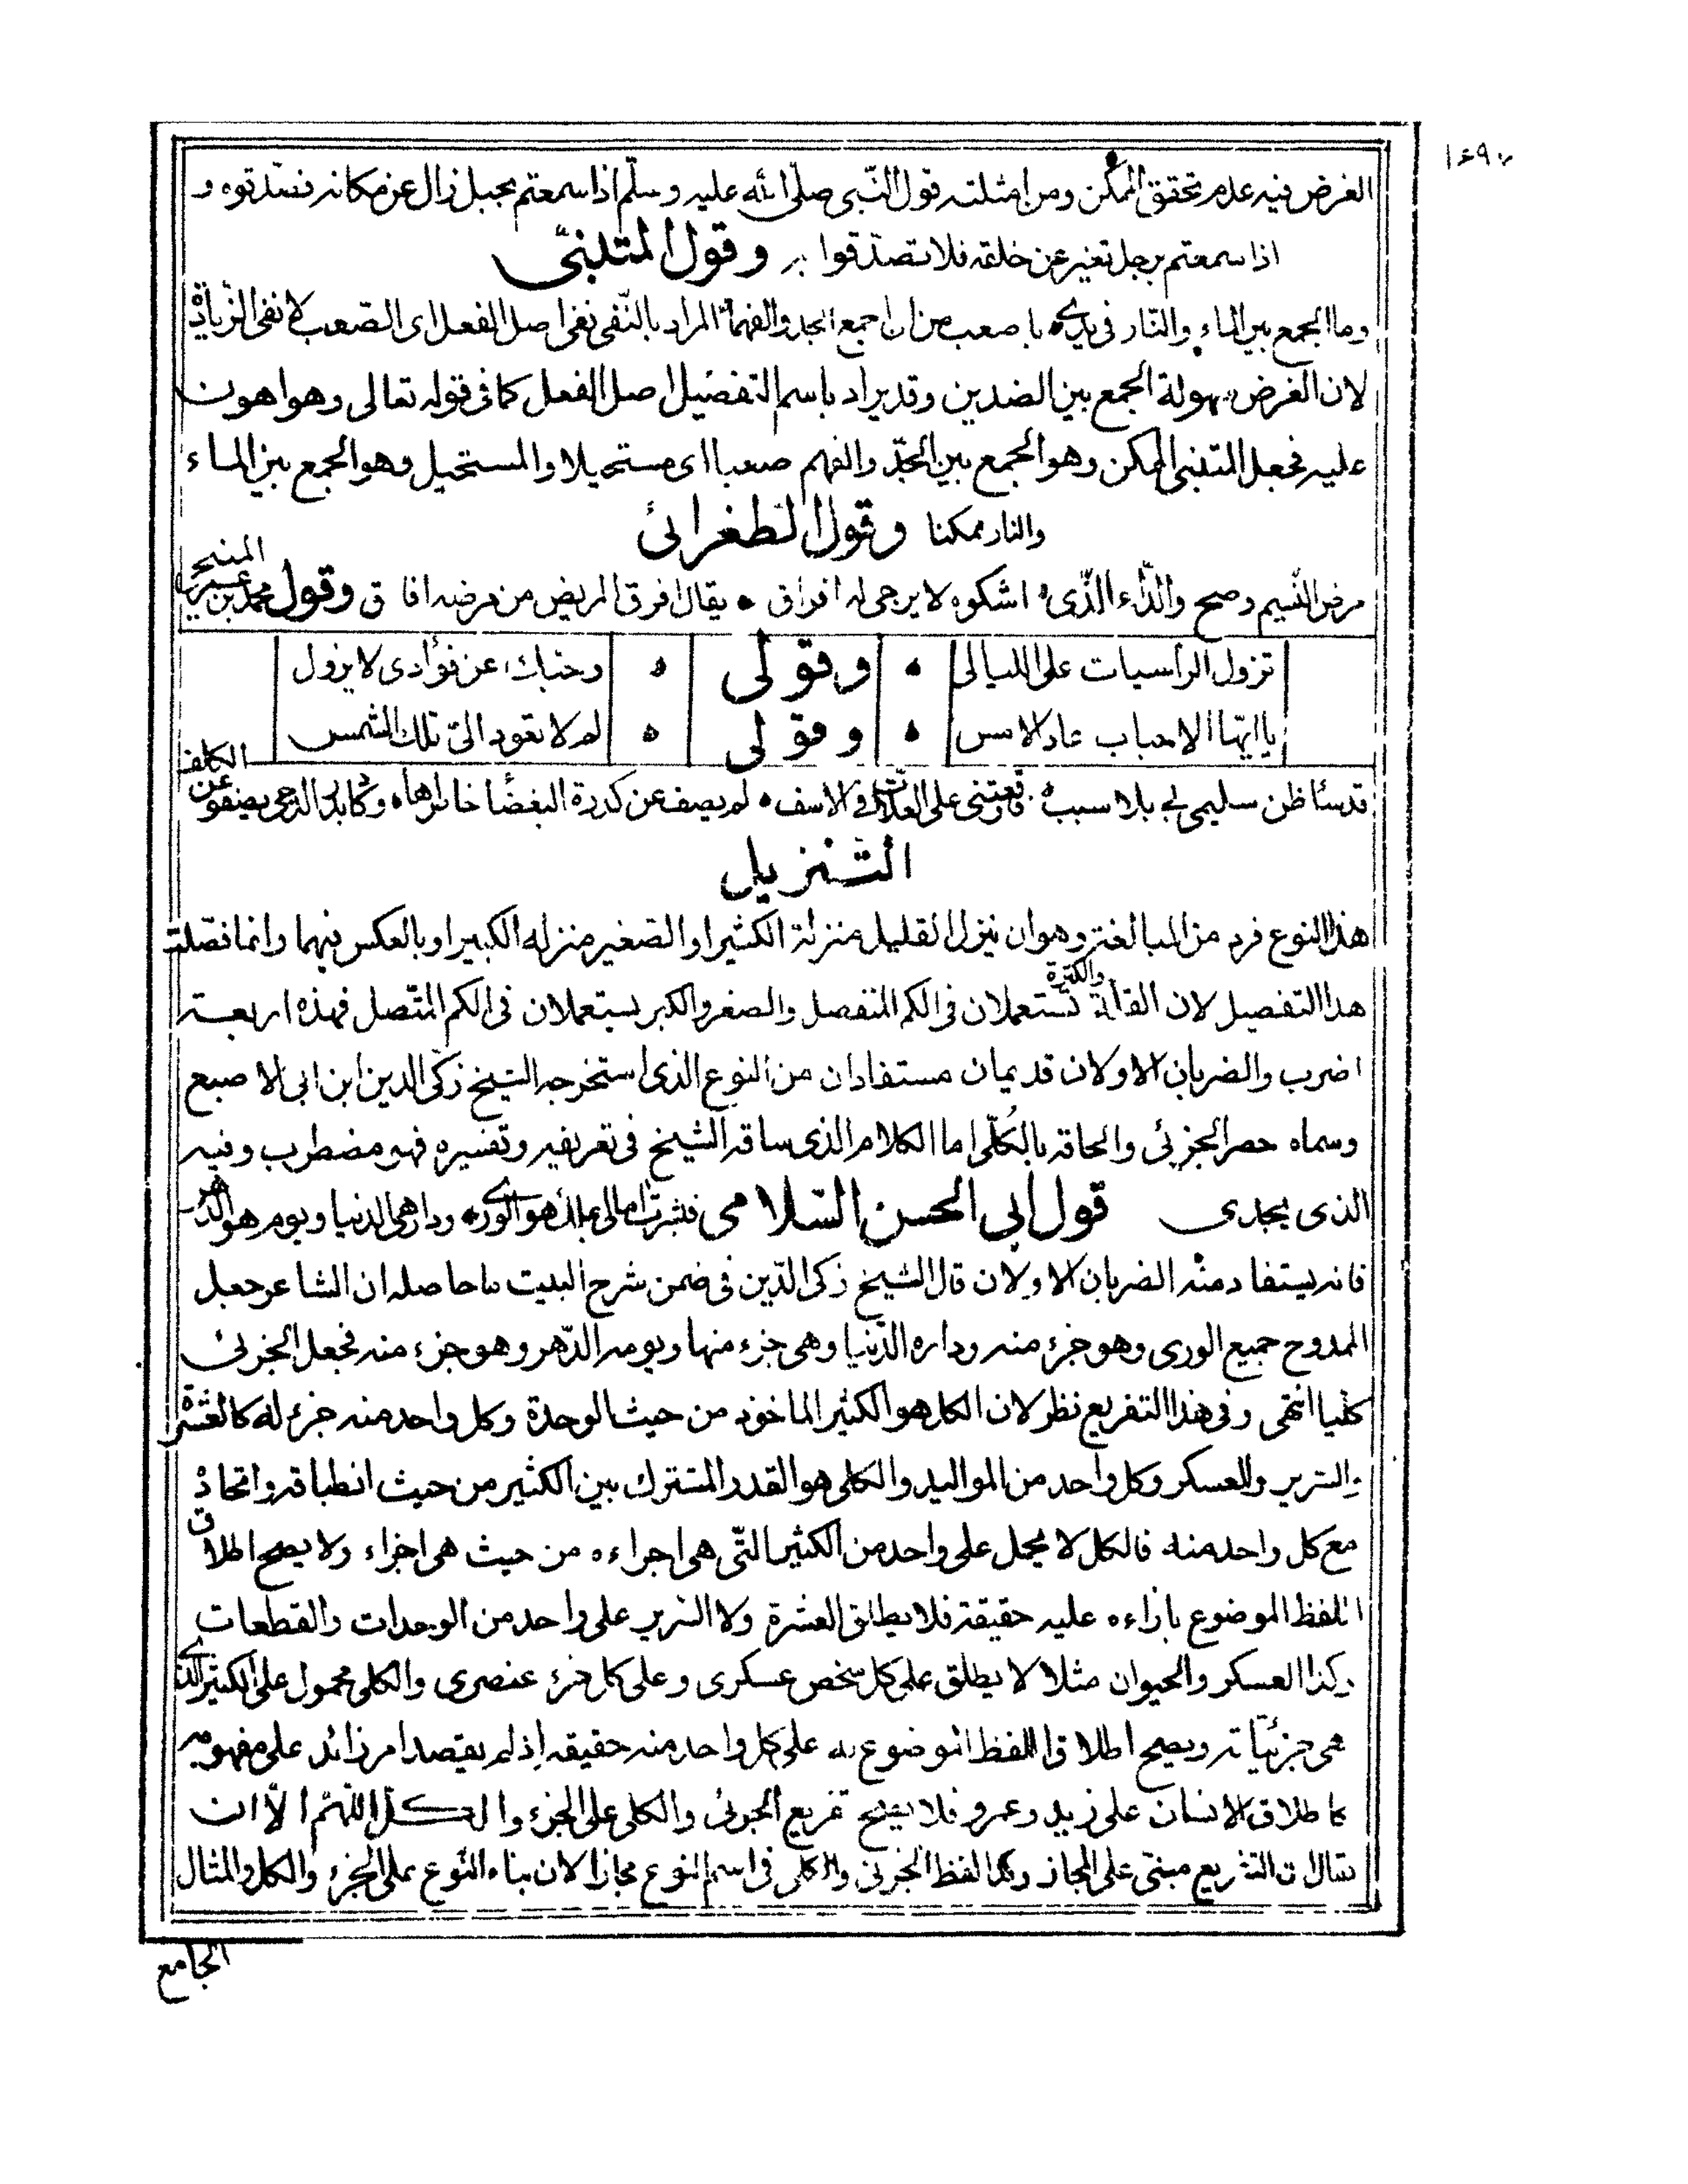 الغرض فيه عدم تحقق الممكن ومن امثلته قول النّبى صلّى الله عليه وسلّم اذا سمعتم بجبل زال عن مكانه فصدّقوه و
اذا سمعتم برجل تغير عن خلقه فلا تصدّقوا وقول المتنبّى
وما الجمع بين الماء والنّار فى يدى باصعب من ان اجمع الجد والفهما المراد بالنّفى نفى اصل الفعل اى الصّعب لا نفى الزيادة
لان الغرض سهولة الجمع بين الضدين وقد يراد باسم التفضيل اصل الفعل كما فى قوله تعالى وهو اهون
عليه فجعل المتنبى الممكن وهو الجمع بين الجدّ والفهم صعبا اى مستحيلا والمستحيل وهو الجمع بين الماء
والنار ممكنا وقول الطغرائى
مرض النّسيم وصح والدّاء الذّى اشكوه لا يرجى له افراق يقال افرق المريض من مرضه افاق وقول محمد بن
تزول الراسيات على الليالى وقولى وحبك عن فؤادى لا يزول
يا ايّها الاحباب عاد الامس وقولى لم لا تعود الىّ تلك الشمس
قد ساء ظن سليمى بى بلا سبب على فى الاسف لم يصف عن كدرة البغضا خاطرها الدجى يصفو عن الكلف
التنزيل
هذا النوع فرد من المبالغة وهو ان ينزل القليل منزلة الكثير او الصغير منزله الكبير او بالعكس فيهما وانما فصّلت
هذا التفصيل لان القلة والكثرة تستعملان فى الكم المنفصل والصغر والكبر يستعملان فى الكم المتّصل فهذه اربعة
اضرب والضربان الاولان قديمان مستفادان من النوع الذى استخرجه الشيخ زكى الدين ابن ابى الاصبع
وسماه حصر الجزئى والحاقه بالكُلّى اما الكلام الذى ساقه الشيخ فى تعريفه وتفسيره فهو مضطرب وفيه
الذى يجدى قول ابى الحسن السّلامى فبشرت امالى بملك هو الورى ودار هى الدنيا ويوم هو الدهر
فانه يستفاد منه الضربان الاولان قال الشيخ زكى الدّين فى ضمن شرح البيت ما حاصله ان الشاعر جعل
الممدوح جميع الورى وهو جزء منه وداره الدّنيا وهى جزء منها ويومه الدّهر وهو جزء منه فجعل الجزئى
كليا انتهى وفى هذا التفريع نظر لان الكل هو الكثير الماخوذ من حيث الوحدة وكل واحد منه جزء له كالعشرة
والسّرير والعسكر وكل واحد من المواليد والكلى هو القدر المشترك بين الكثير من حيث انطباقه واتحاده
مع كل واحد منه فالكل لا يحمل على واحد من الكثير التّى هى اجراءه من حيث هى اجزاء ولا يصح اطلاق
اللفظ الموضوع بازاءه عليه حقيقة فلا يطلق العشرة ولا السّرير على واحد من الوحدات والقطعات
وكذا العسكر والحيوان مثلا لا يطلق على كل شخص عسكرى وعلى كل جزء عنصرى والكلى محمول على الكثير الذى
هى جزئيّاته ويصح اطلاق اللفظ الموضوع له على كل واحد منه حقيقه إذ لم يقصد امر زائد على مفهومه
كاطلاق الانسان على زيد وعمرو فلا يصح تفريع الجزئى والكلى على الجزء والكل اللّهم الّا ان
يقال ان التفريع مبنى على المجاز وكذا لفظ الجزئى والكلى فى اسم النوع مجاز لان بناء النّوع على الجزء والكل والمثال
الجامع